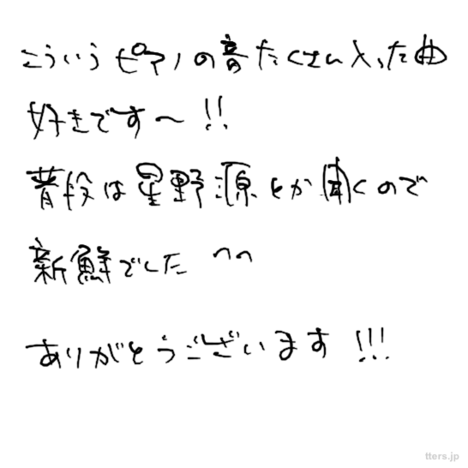 こういうピアノの音たくさん入った曲
好きです〜!!
普段は星野源とか聞くので
新鮮でした ^^
ありがとうございます!!!
tters.jp